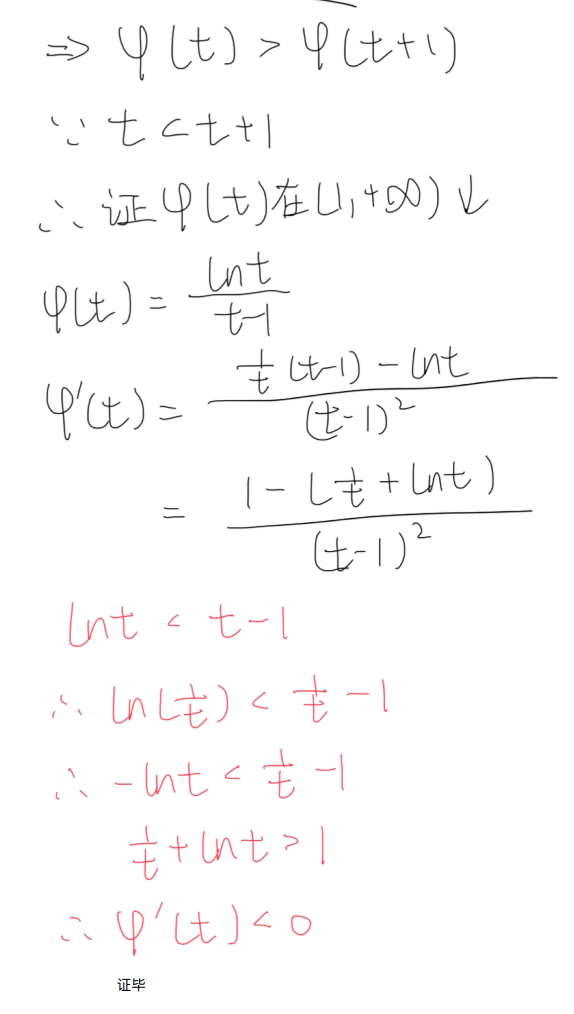 ⇒ φ(t) > φ(t+1)
∵ t < t+1
∴ 证φ(t)在(1,+∞)↓
φ(t) = lnt / t-1
φ'(t) = 1/t (t-1) - lnt / (t-1)²
= 1 - (1/t + lnt) / (t-1)²
lnt < t-1
∴ ln(1/t) < 1/t - 1
∴ -lnt < 1/t - 1
1/t + lnt > 1
∴ φ'(t) < 0
证毕